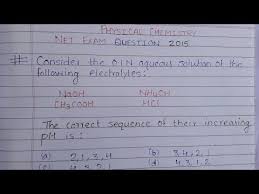 PHYSICAL CHEMISTRY
NET EXAM QUESTION 2015
# Consider the 0.1N aqueous solution of the
following electrolytes:
NaOH NH4OH
CH3COOH HCl
The correct sequence of their increasing
pH is:
(a) 2,1,3,4 (b) 3,4,2,1
(d) 4,3,1,2